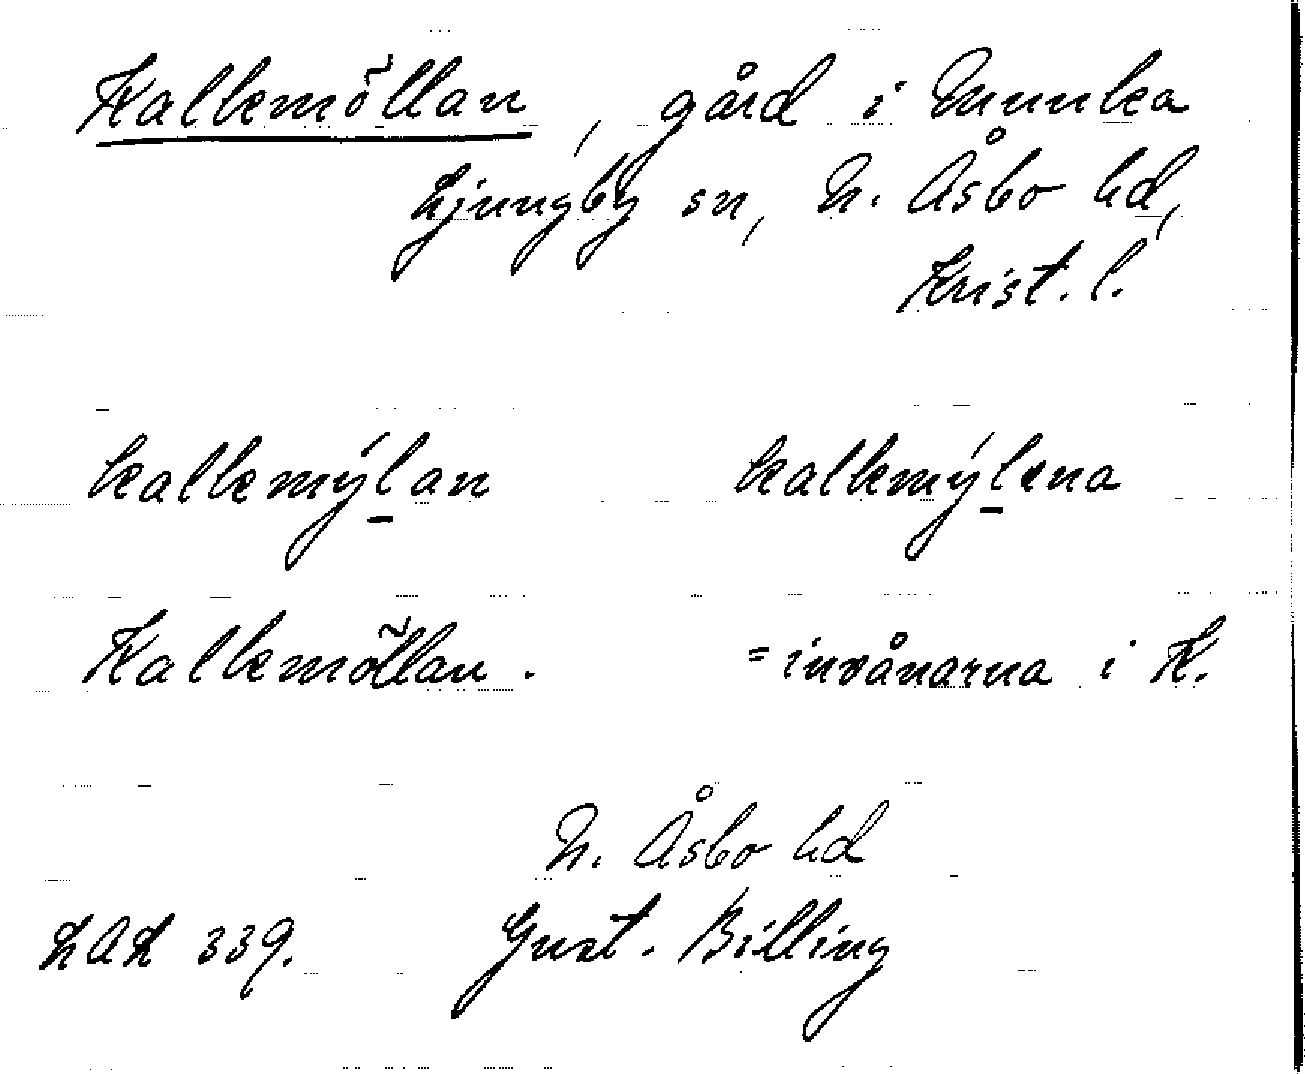 Kallemöllan, gård i Munka
Ljungby sn, N. Åsbo hd,
Krist. l.
kallemýlan kallemýlena
Kallemöllan. =invånarna i K.
N. Åsbo hd
LAL 339. Gust. Billing